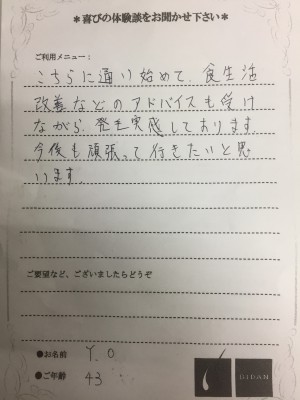 *喜びの体験談をお聞かせ下さい*
ご利用メニュー：
こちらに通い始めて、食生活
改善などのアドバイスも受け
ながら、発毛実感しております。
今後も頑張って行きたいと思
います。
ご要望など、ございましたらどうぞ
●お名前 Y.O
●ご年齢 43